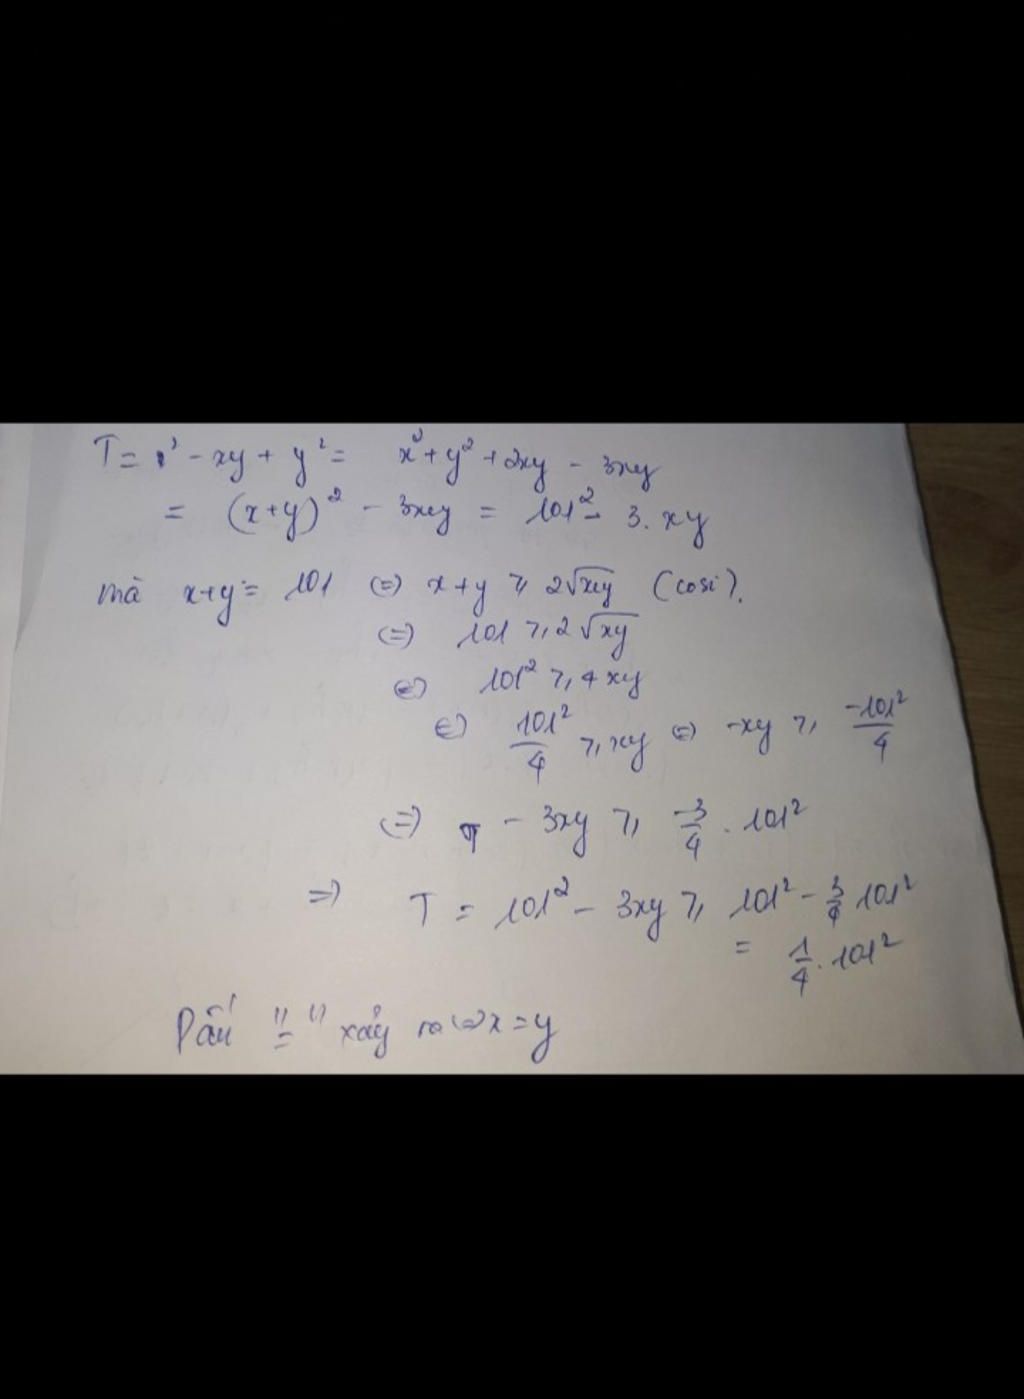 T = x² - xy + y² = x² + y² + 2xy - 3xy
= (x+y)² - 3xy = 101² - 3.xy
mà x+y = 101 <=> x+y ≥ 2√xy (cosi).
<=> 101 ≥ 2√xy
<=> 101² ≥ 4xy
<=> 101²/4 ≥ xy <=> -xy ≥ -101²/4
<=> - 3xy ≥ -3/4 . 101²
=> T = 101² - 3xy ≥ 101² - 3/4 101²
= 1/4 . 101²
Dấu "=" xảy ra <=> x = y